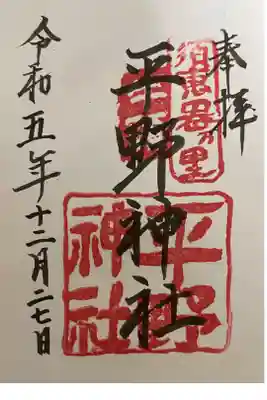 奉拝
須恵器乃里
平野神社
平野
神社
令和五年十二月二七日